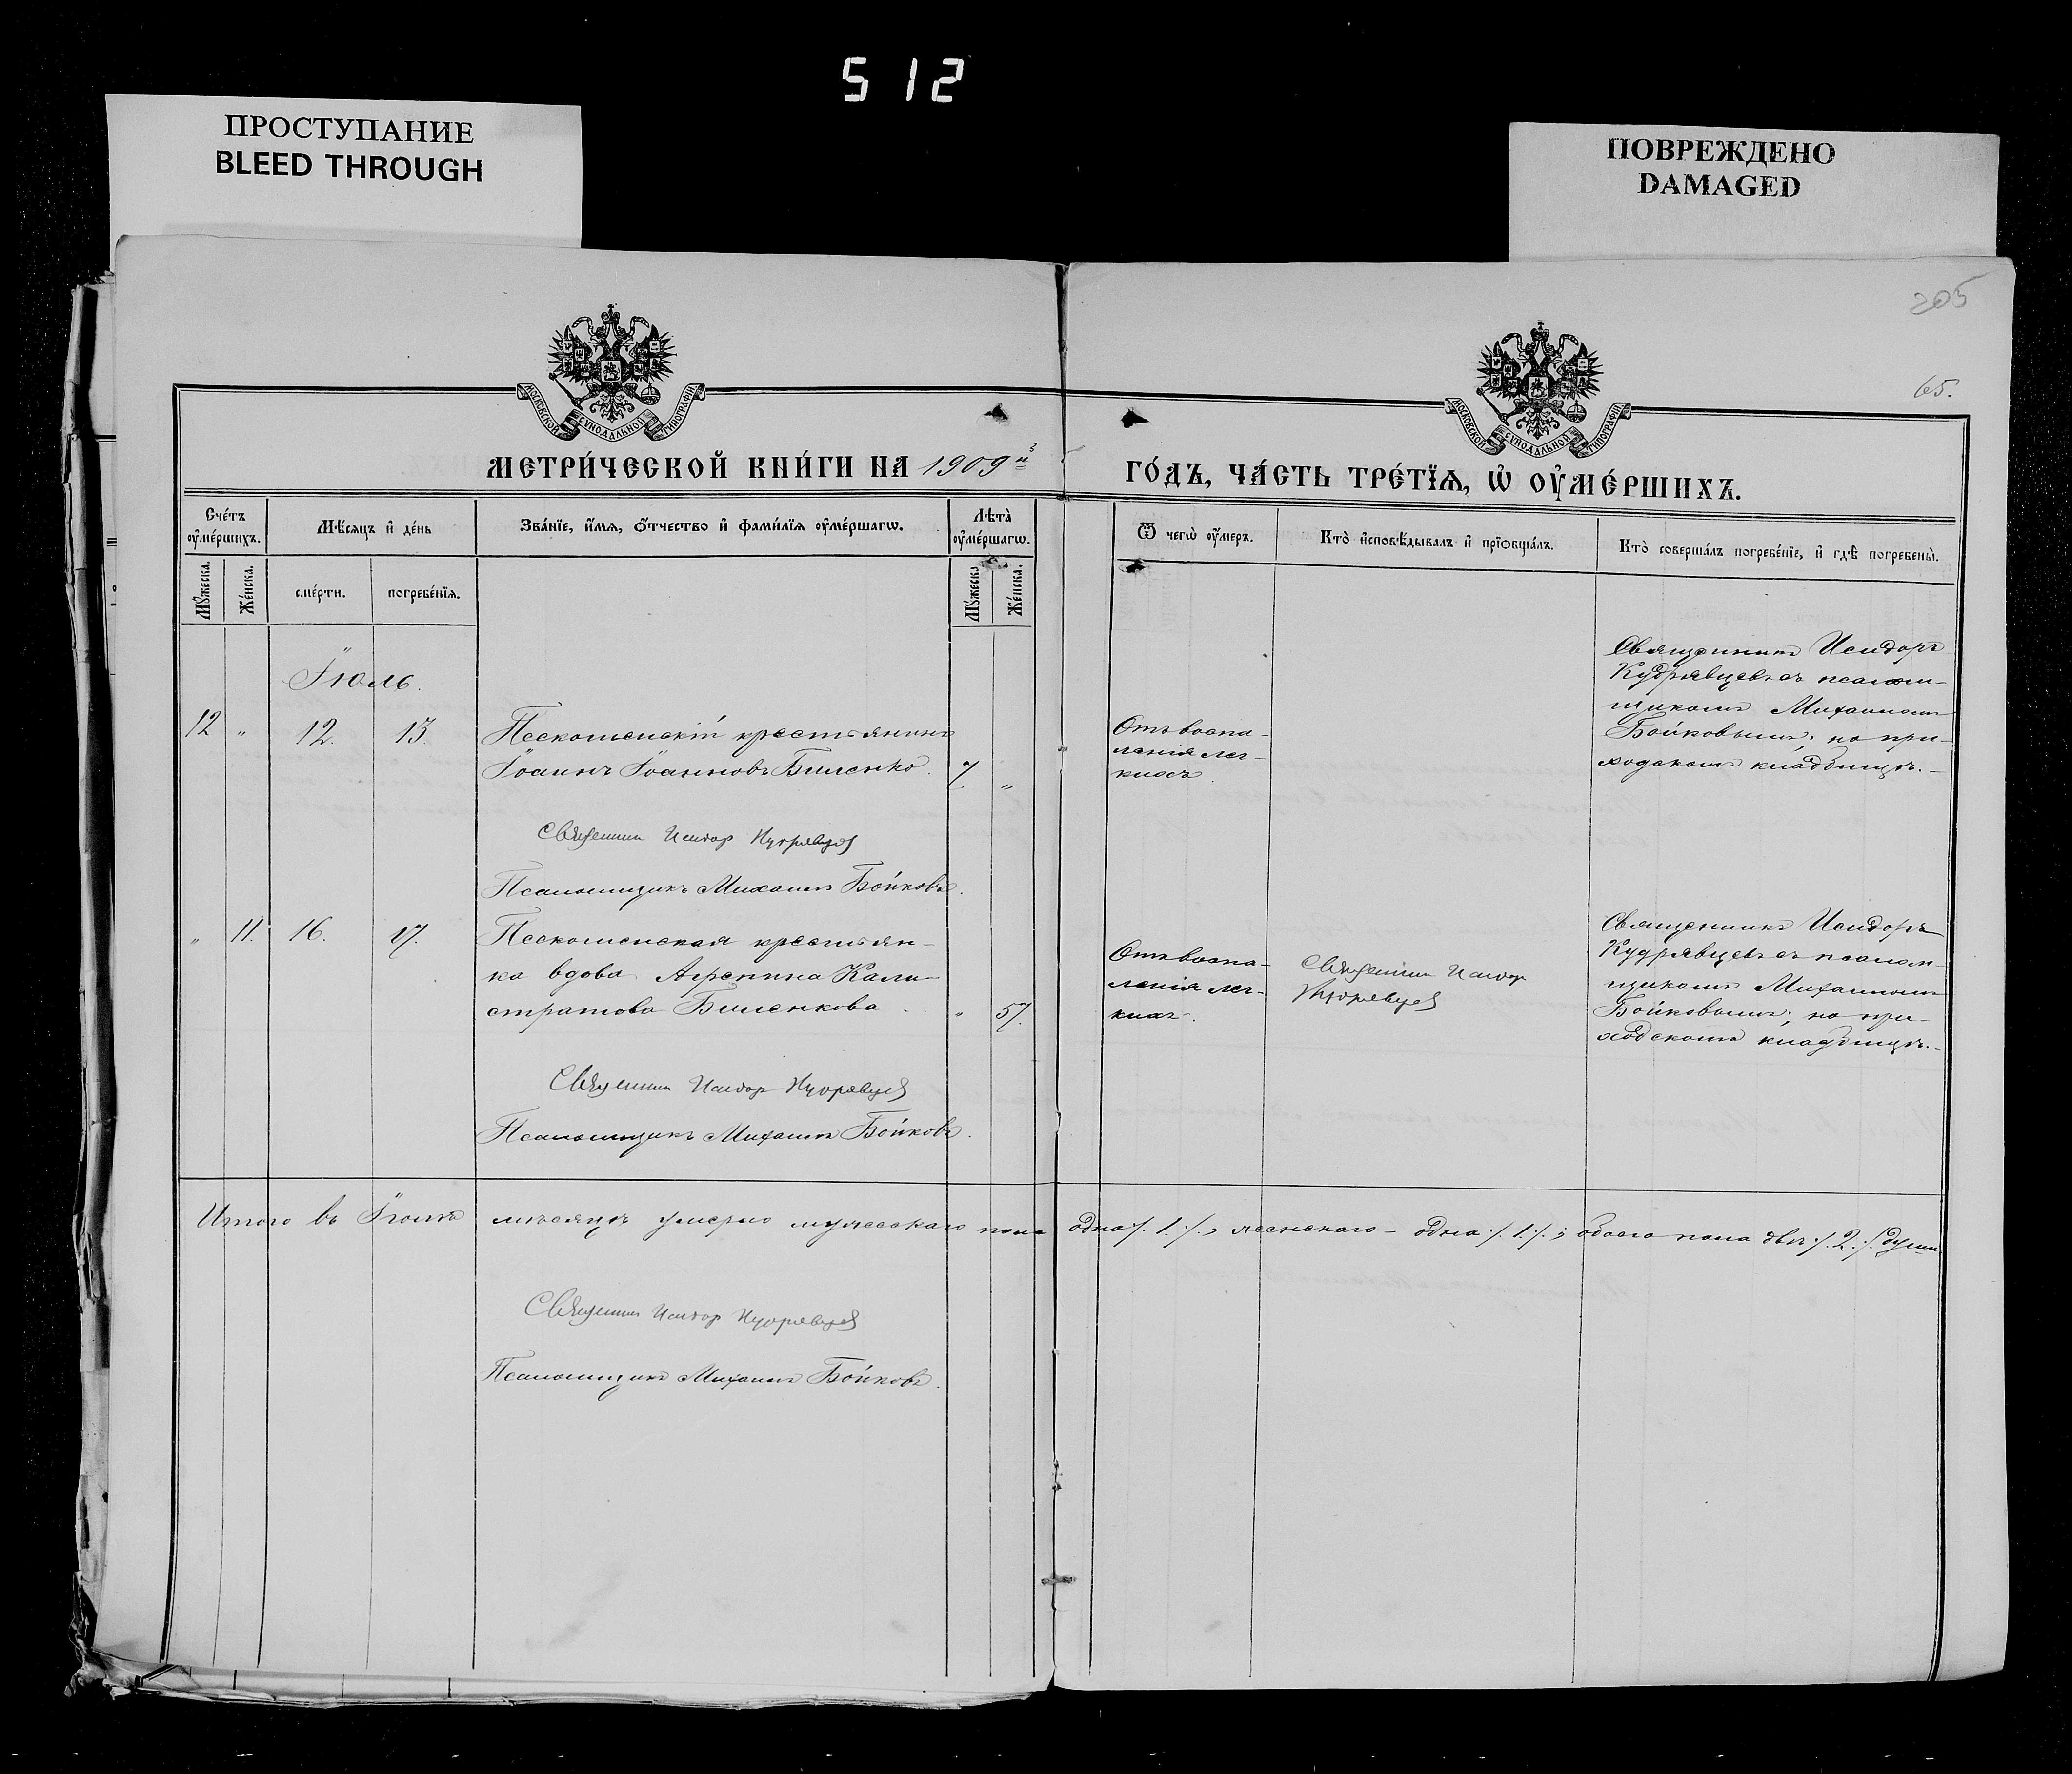 512
ПРОСТУПАНИЕ
BLEED THROUGH
ПОВРЕЖДЕНО
DAMAGED
205
65.
МОСКОВСКОЙ СѴНОДАЛЬНОЙ ТИПОГРАФІИ
МОСКОВСКОЙ СѴНОДАЛЬНОЙ ТИПОГРАФІИ
МЕТРИ́ЧЕСКОЙ КНИ́ГИ НА 1909й
ГО́ДЪ, ЧА́СТЬ ТРЕ́ТЇѦ, Ѡ҆ ОУ҆МЕ́РШИХЪ.
Сче́тъ оу҆ме́ршихъ.
Мѣ́сяцъ и҆ де́нь
Зва́нїе, и҆́мя, ѻ҆́тчество и҆ фами́лїя оу҆ме́ршагѡ.
Лѣ̀та оу҆ме́ршагѡ.
Ѿ чегѡ̀ оу҆́меръ.
Кто̀ и҆сповѣ́дывалъ и҆ прїѻбща́лъ.
Кто̀ соверша́лъ погребе́нїе, и҆ гдѣ̀ погребены̀.
Мꙋ́жеска.
Же́нска.
сме́рти.
погребе́нїя.
Мꙋ́жеска
Же́нска.
Іюль.
12 " 12. 13.
Пескошенскій крестьянинъ
Іоаннъ Іоанновъ Биленко.
"
Отъ воспа-
ленія лег-
кихъ.
Священникъ Исидоръ
Кудрявцевъ съ псалом-
щикомъ Михаиломъ
Бойковымъ; на при-
ходскомъ кладбищѣ.
Священник Исидор Кудрявцев
Псаломщикъ Михаилъ Бойковъ.
" 11. 16. 17.
Пескошенская крестьян-
ка вдова Агрепина Кали-
стратова Биленкова
" 57.
Отъ воспа-
ленія лег-
кихъ.
Священник Исидор
Кудрявцев
Священникъ Исидоръ
Кудрявцевъ съ псалом-
щикомъ Михаиломъ
Бойковымъ; на при-
ходскомъ кладбищѣ.
Священник Исидор Кудрявцев
Псаломщикъ Михаилъ Бойковъ.
Итого въ Іюлѣ мѣсяцѣ умерло мужескаго пола одна /. 1. /., женскаго - одна /. 1. /.; обоего пола двѣ /. 2. /. души
Священник Исидор Кудрявцев
Псаломщикъ Михаилъ Бойковъ.